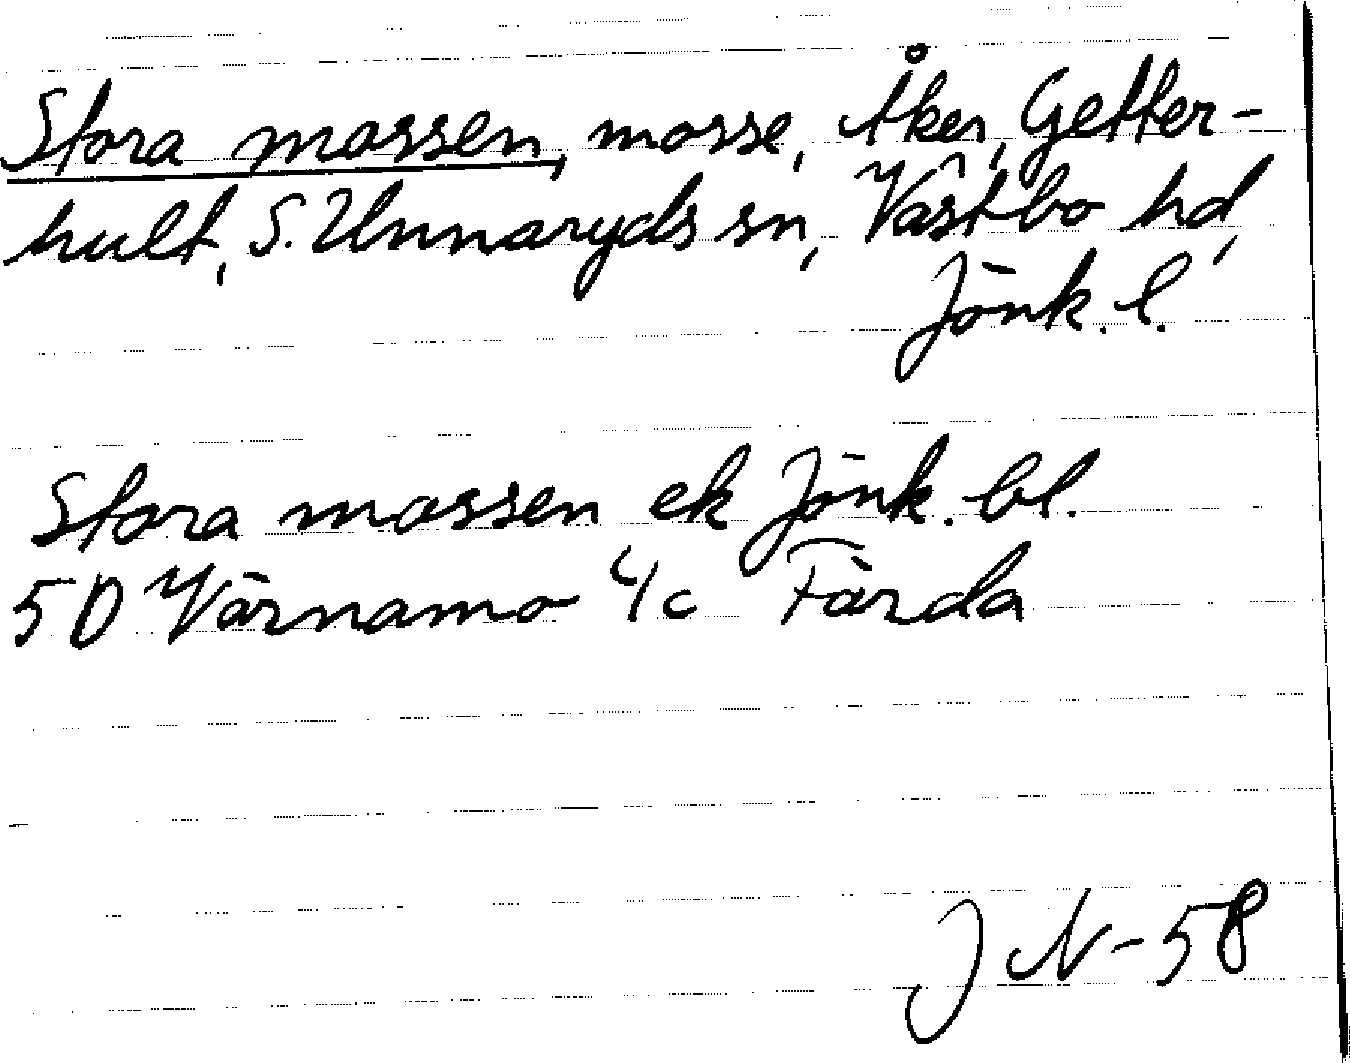 Stora mossen, mosse, Åker, Getter-
hult, S. Unnaryds sn, Västbo hd,
Jönk. l.
Stora mossen ek Jönk. bl.
5D Värnamo 4c Färda
J N-58